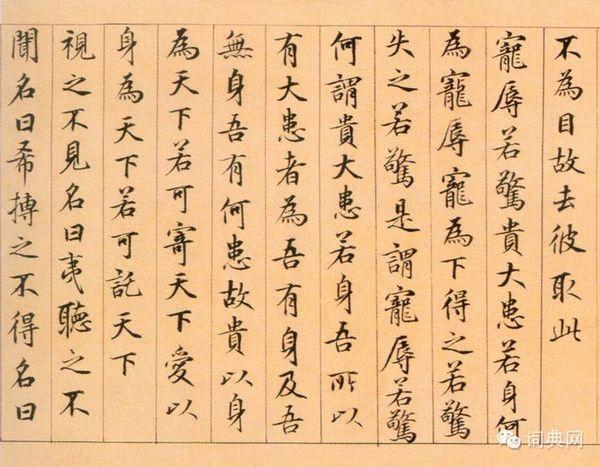 不為目故去彼取此
寵辱若驚貴大患若身何
為寵辱寵為下得之若驚
失之若驚是謂寵辱若驚
何謂貴大患若身吾所以
有大患者為吾有身及吾
無身吾有何患故貴以身
為天下若可寄天下愛以
身為天下若可託天下
視之不見名曰夷聽之不
聞名曰希搏之不得名曰
词典网